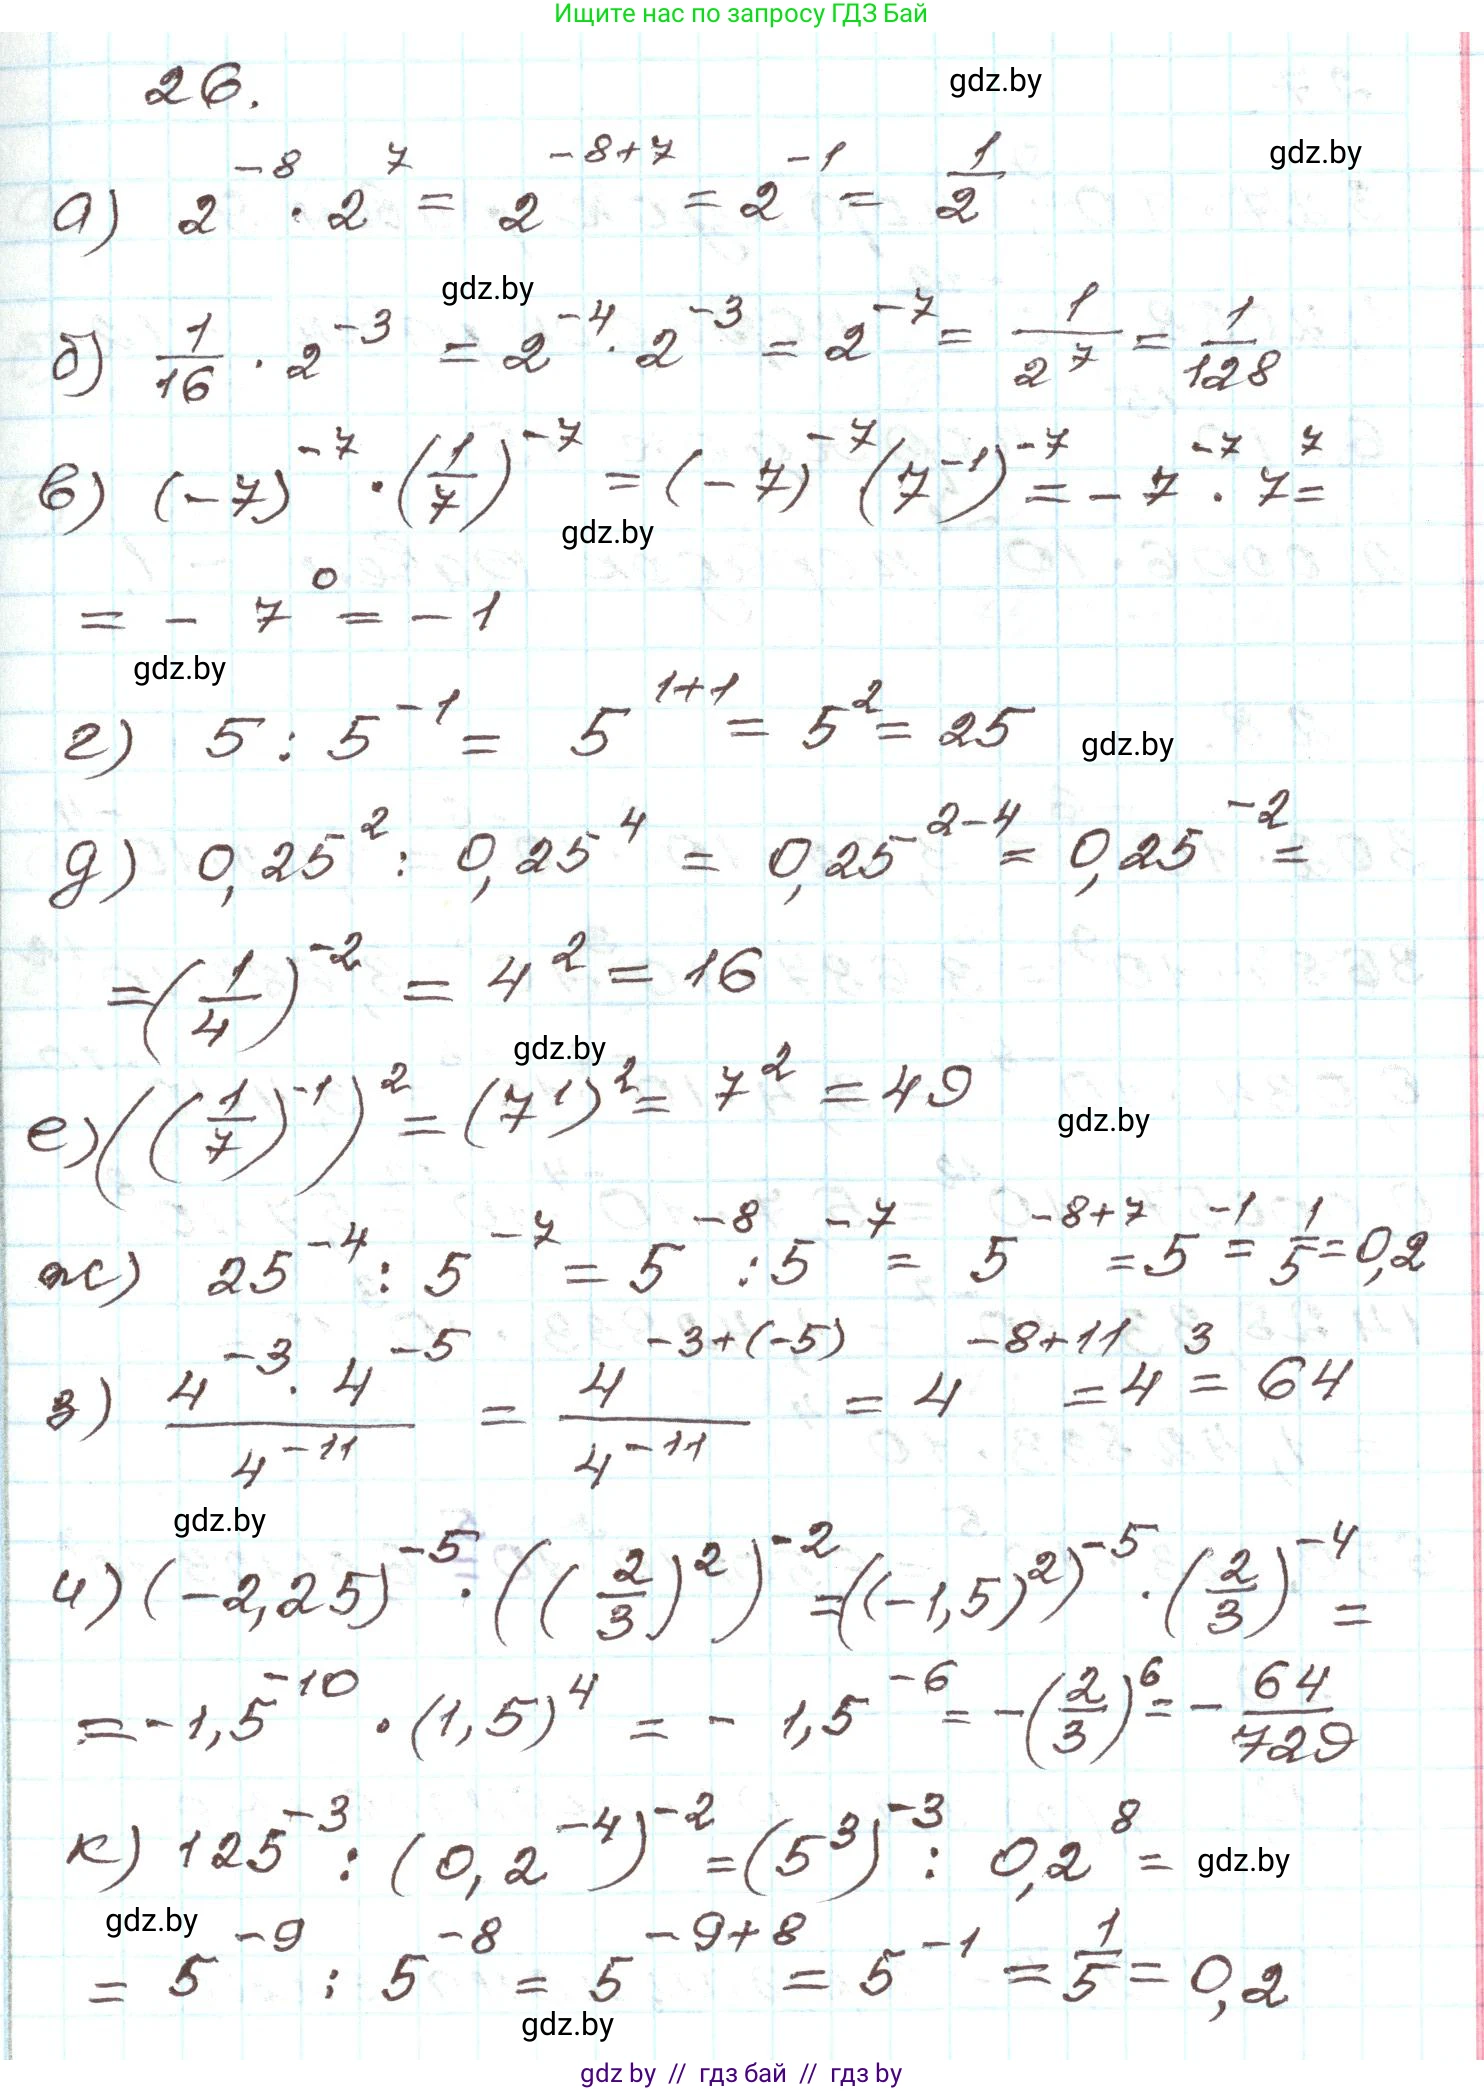 Ищите нас по запросу ГДЗ Бай
26.
gdz.by
gdz.by
а) 2^{-8} · 2^{7} = 2^{-8+7} = 2^{-1} = 1/2
gdz.by
б) 1/16 · 2^{-3} = 2^{-4} · 2^{-3} = 2^{-7} = 1/2^{7} = 1/128
в) (-7)^{-7} · (1/7)^{-7} = (-7)^{-7} (7^{-1})^{-7} = -7^{-7} · 7^{7} =
gdz.by
= - 7^{0} = -1
gdz.by
г) 5 : 5^{-1} = 5^{1+1} = 5^{2} = 25
gdz.by
д) 0,25^{2} : 0,25^{4} = 0,25^{2-4} = 0,25^{-2} =
= (1/4)^{-2} = 4^{2} = 16
gdz.by
е) ((1/7)^{-1})^{2} = (7^{1})^{2} = 7^{2} = 49
gdz.by
ж) 25^{-4} : 5^{-7} = 5^{-8} : 5^{-7} = 5^{-8+7} = 5^{-1} = 1/5 = 0,2
з) (4^{-3} · 4^{-5})/4^{-11} = 4^{-3+(-5)}/4^{-11} = 4^{-8+11} = 4^{3} = 64
gdz.by
и) (-2,25)^{-5} · ((2/3)^{2})^{-2} = ((-1,5)^{2})^{-5} · (2/3)^{-4} =
= -1,5^{-10} · (1,5)^{4} = - 1,5^{-6} = -(2/3)^{6} = - 64/729
к) 125^{-3} : (0,2^{-4})^{-2} = (5^{3})^{-3} : 0,2^{8} =
gdz.by
gdz.by
= 5^{-9} : 5^{-8} = 5^{-9+8} = 5^{-1} = 1/5 = 0,2
gdz.by
gdz.by // гдз бай // гдз by